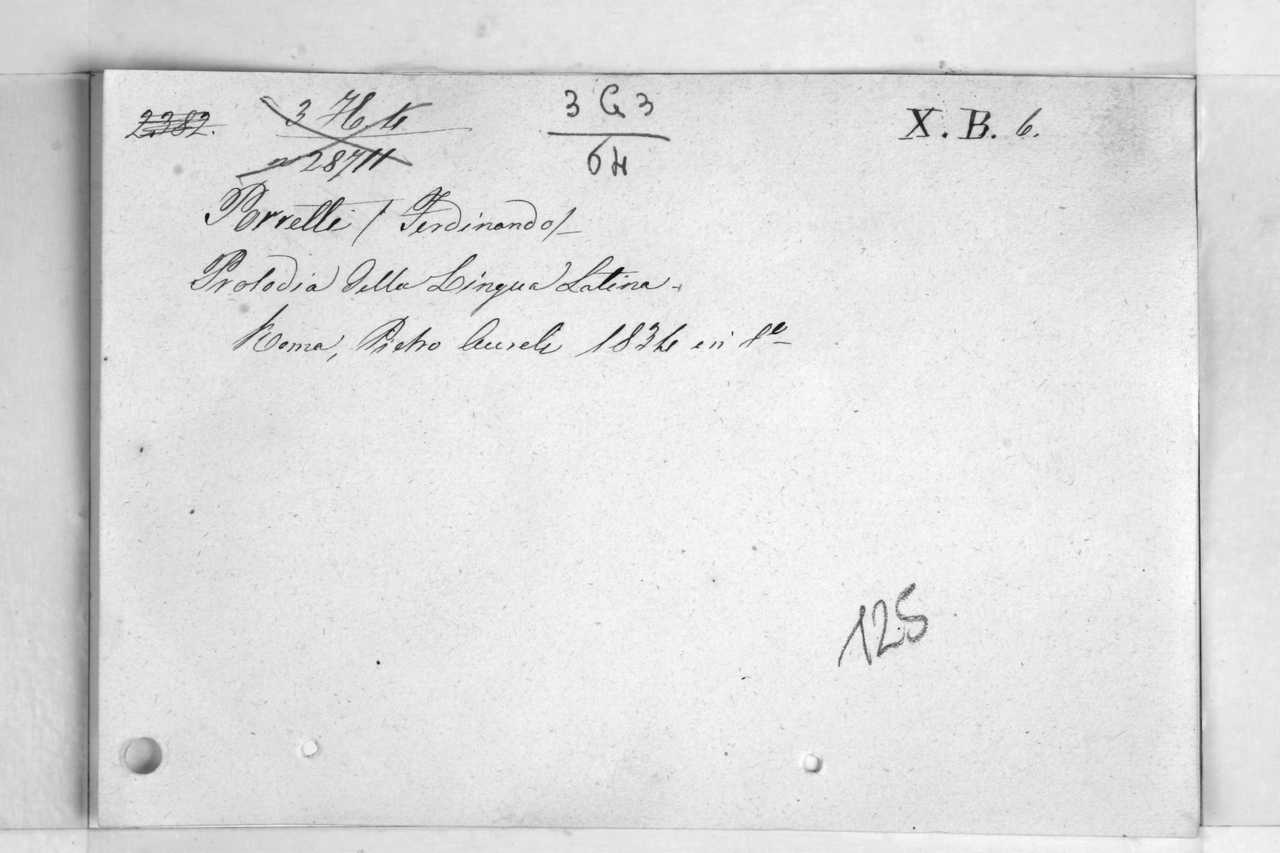 2382. 3 H 4 3 G 3 X. B. 6.
28711 64
Porretti (Ferdinando)
Prosodia della Lingua Latina.
Roma, Pietro Aureli 1834 in 8º
125